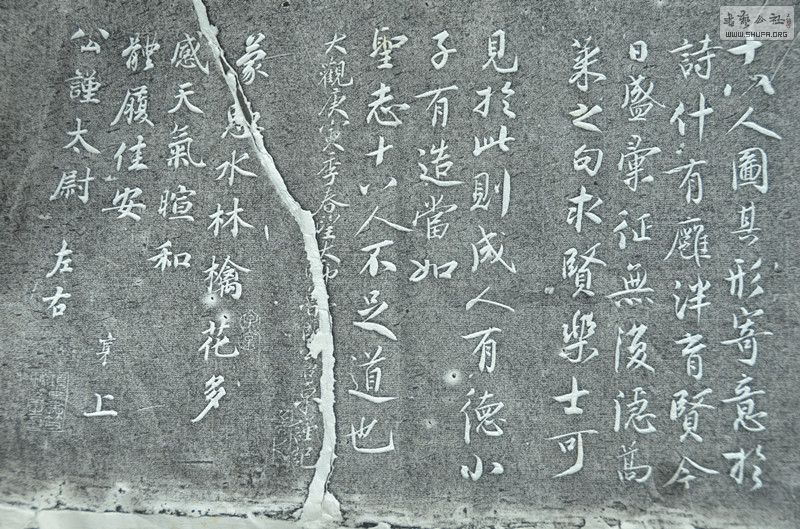 十八人圖其形寄意於
詩什有廱泮育賢今
日盛彙征無復隱蒿
萊之句求賢樂士可
見於此則成人有德小
子有造當如
聖志十八人不足道也
大觀庚寅季春望太師
蒙惠水林檎花多
感天氣暄和
體履佳安 襄上
公謹太尉 左右
書藝公社
WWW.SHUFA.ORG